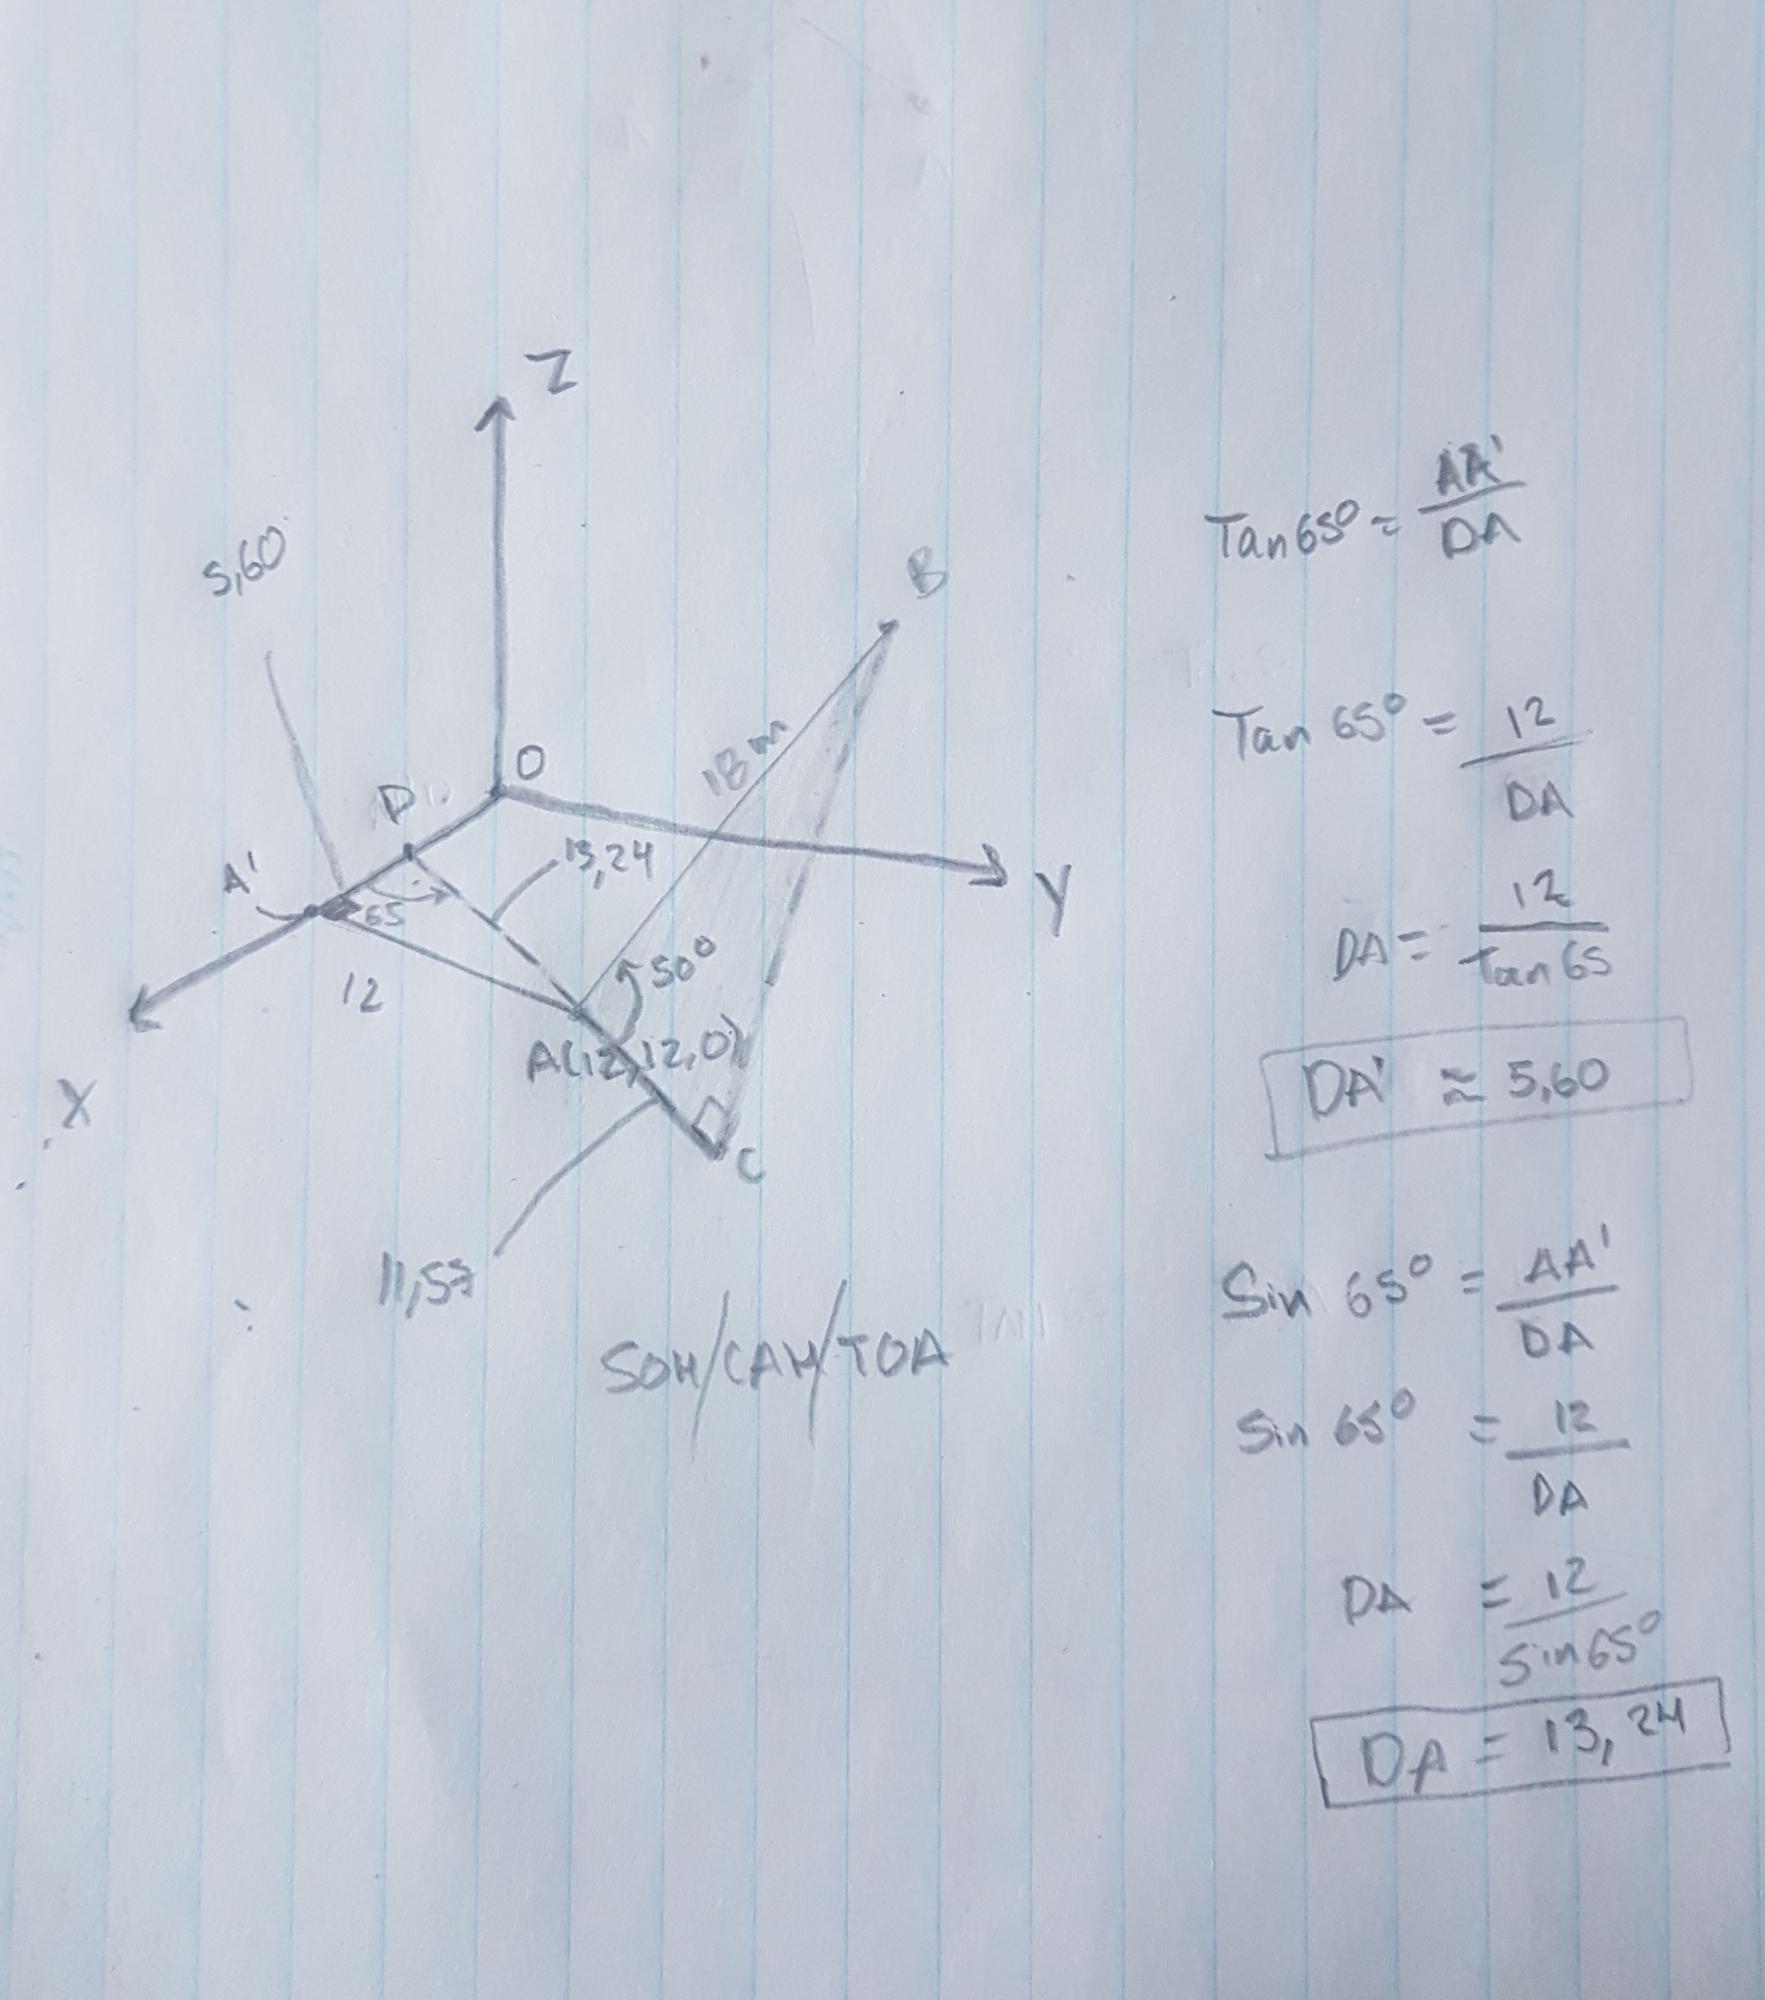 Z
5,60
B
18 m
O
D
13,24
A'
65
Y
50°
12
A(12,12,0)
X
C
11,57
SOH/CAH/TOA
Tan 65° = AA' / DA
Tan 65° = 12 / DA
DA = 12 / Tan 65
DA' ≈ 5,60
Sin 65° = AA' / DA
Sin 65° = 12 / DA
DA = 12 / Sin 65°
DA = 13,24